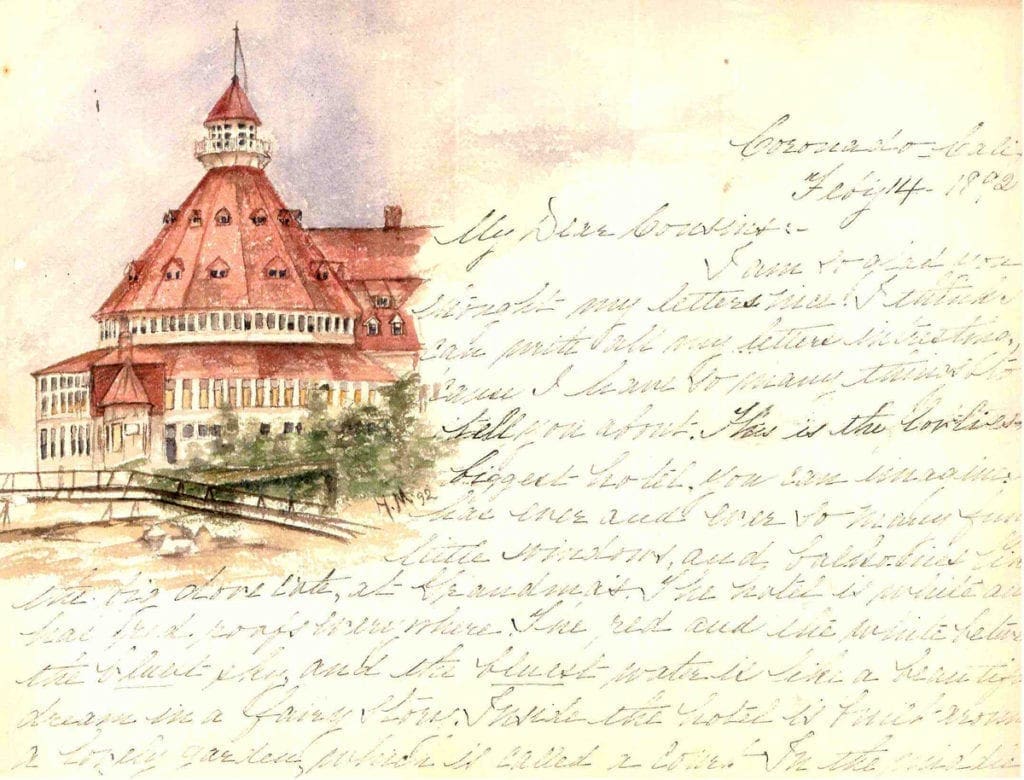 Coronado - Cali
Feby 14 - 1892
My Dear Cousins:-
I am so glad you
thought my letters nice. I think I
can write all my letters interesting,
'cause I have so many things to
tell you about. This is the lovlies
biggest hotel, you can imagine
has ever and ever so many fun
little windows, and balconies lik
the big dove cote, at Grandma's. The hotel is white an
has red roofs everywhere. The red and the white betwe
the bluest sky, and the bluest water is like a beautif
dream in a fairy story. Inside the hotel is built aroun
a lovely garden, which is called a court. In the middle
H.M. 92